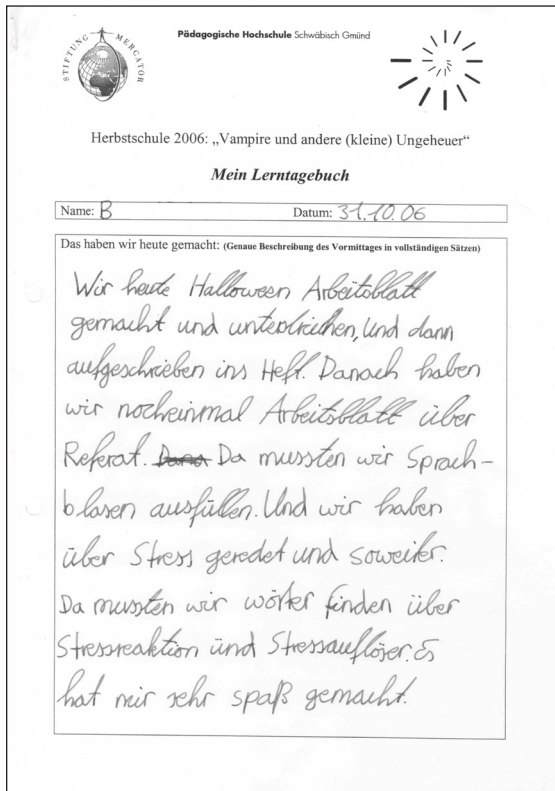 STIFTUNG MERCATOR
Pädagogische Hochschule Schwäbisch Gmünd
Herbstschule 2006: „Vampire und andere (kleine) Ungeheuer“
Mein Lerntagebuch
Name: B Datum: 31.10.06
Das haben wir heute gemacht: (Genaue Beschreibung des Vormittages in vollständigen Sätzen)
Wir heute Halloween Arbeitsblatt
gemacht und unterstrichen, Und dann
aufgeschrieben ins Heft. Danach haben
wir nocheinmal Arbeitsblatt über
Referat. Dana Da mussten wir Sprach-
blasen ausfüllen. Und wir haben
über Stress geredet und soweiter.
Da mussten wir wörter finden über
Stressreaktion und Stressauflöser. Es
hat mir sehr spaß gemacht.